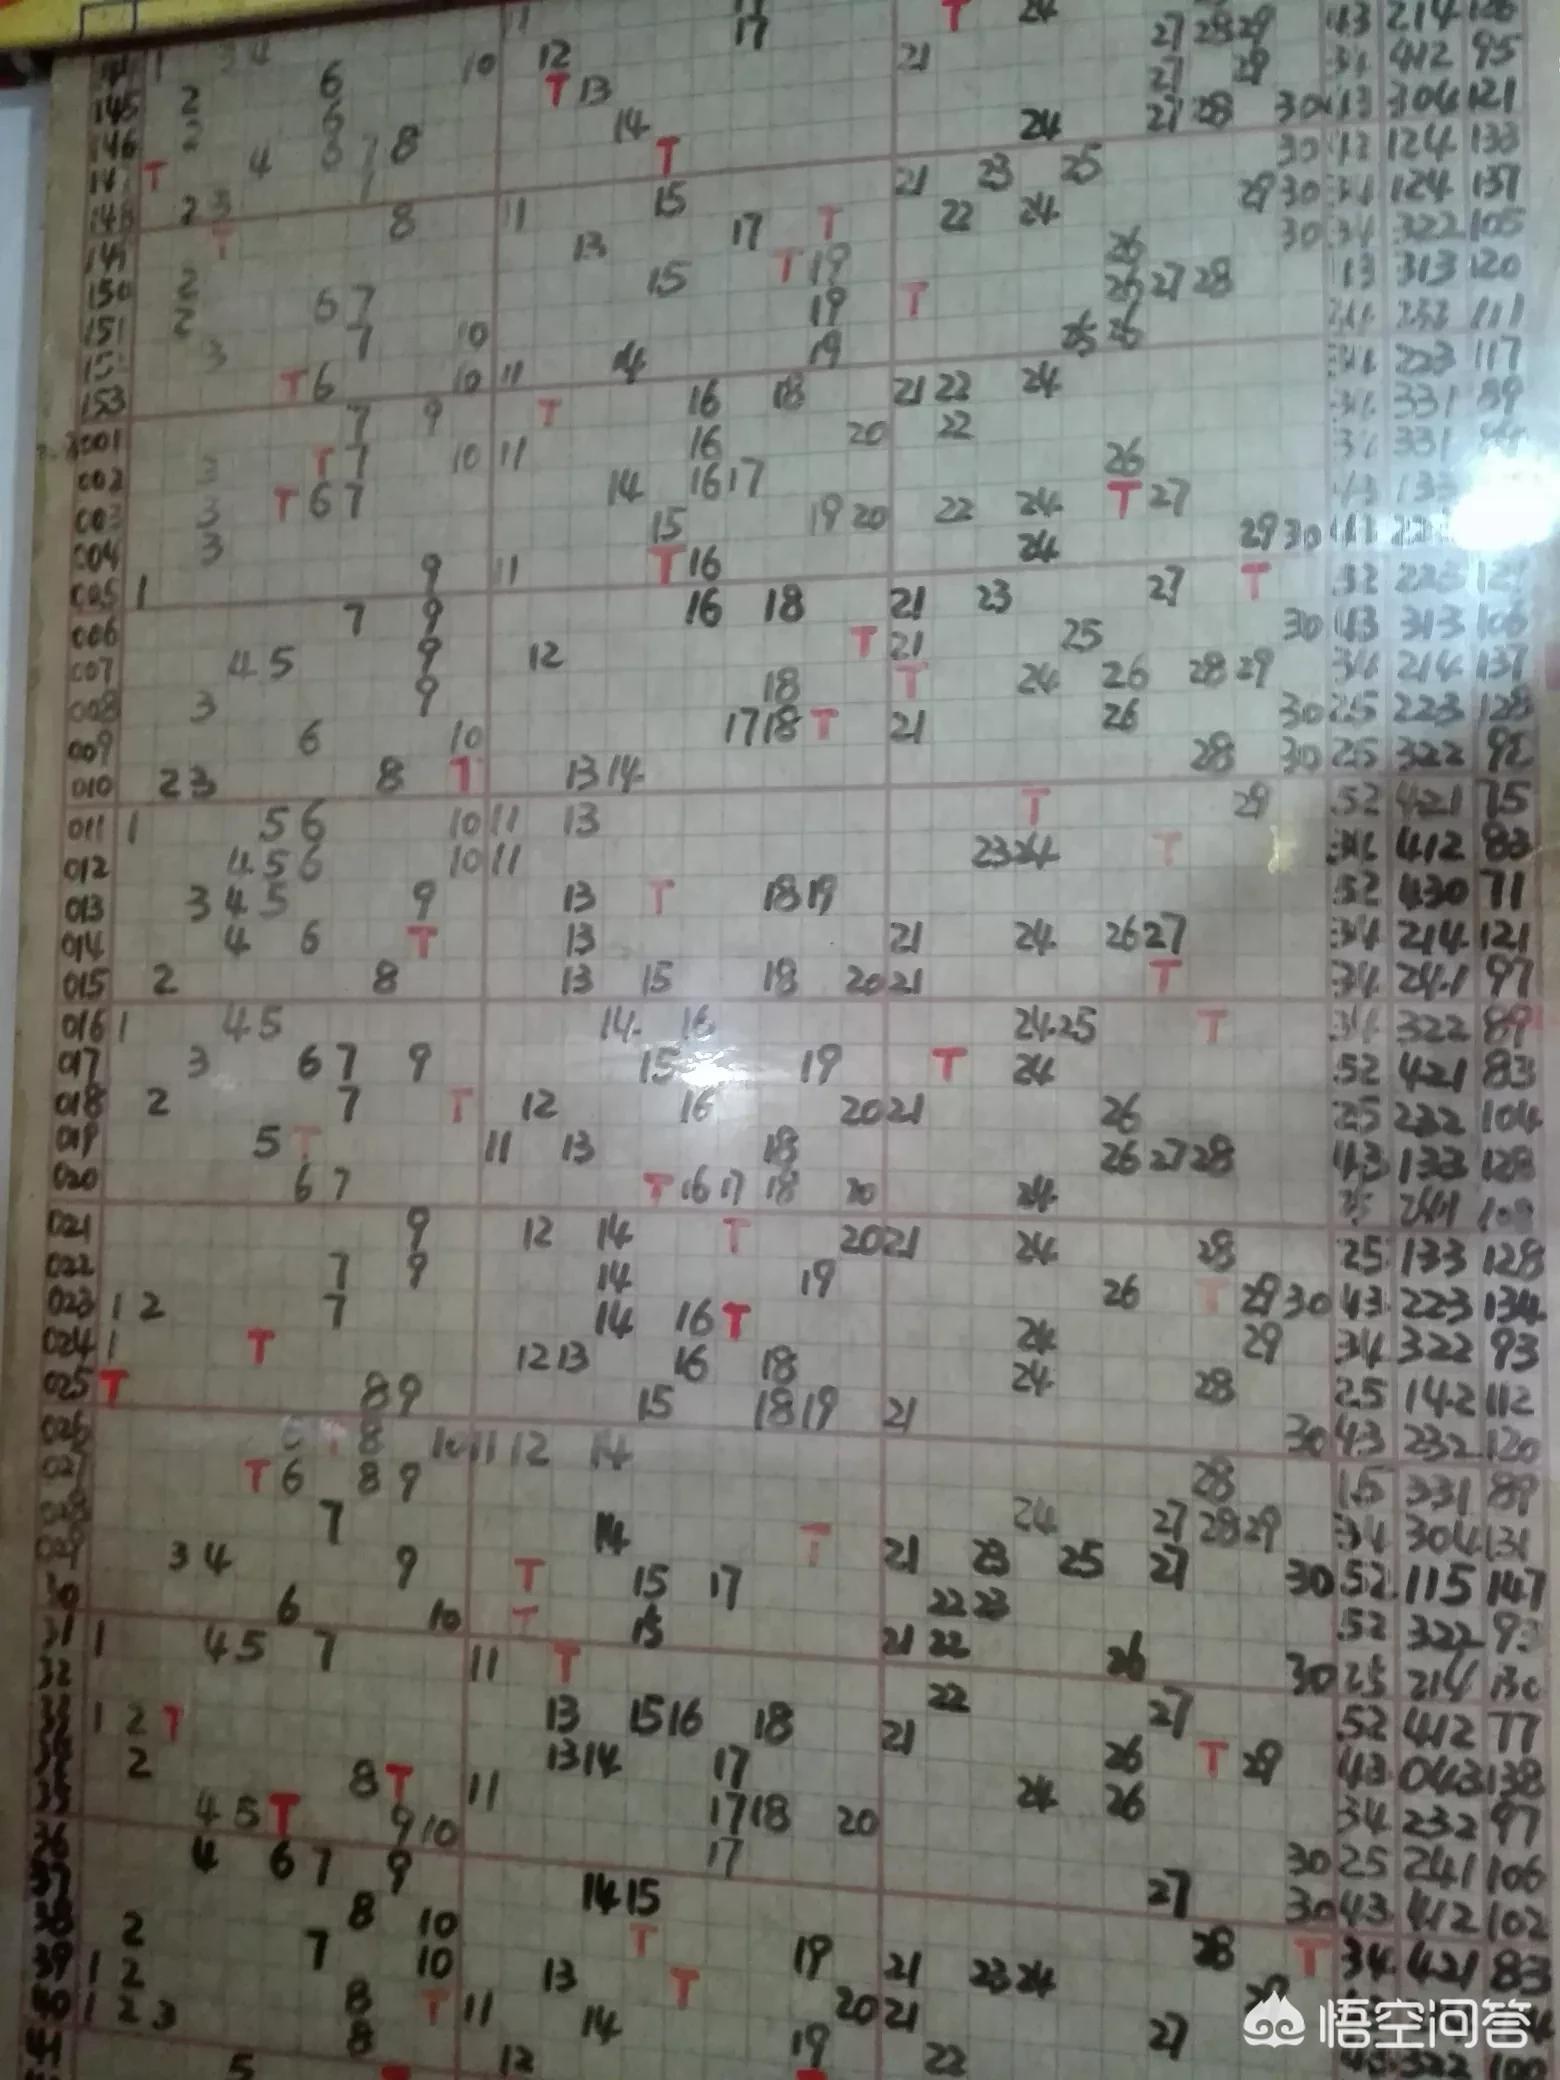 145 2 6 10 12 17 T 24
146 2 6 T 13 21 27 28 29 43 214 126
147 T 4 6 7 8 14 27 29 34 412 95
148 2 3 7 T 24 27 28 30 43 304 121
149 T 8 11 15 21 23 25 30 124 133
150 2 13 17 T 22 24 29 30 34 124 137
151 2 6 7 15 T 19 26 30 34 322 105
152 3 7 10 19 T 26 27 28 13 313 120
153 T 6 10 11 14 19 25 26 34 232 111
001 7 9 T 16 18 21 22 24 34 223 117
002 3 T 7 10 11 16 20 22 34 331 89
003 3 T 6 7 14 16 17 26 34 331
004 3 15 19 20 22 24 T 27 43 133
005 1 9 11 T 16 24 29 30 43
006 7 9 16 18 21 23 27 T 52 223 121
007 4 5 9 12 T 21 25 30 43 313 106
008 3 9 18 T 24 26 28 29 34 214 137
009 6 10 17 18 T 21 26 30 25 223 128
010 2 3 8 T 13 14 28 30 25 322 98
011 1 5 6 10 11 13 T 29 52 421 75
012 4 5 6 10 11 23 24 T 34 412 83
013 3 4 5 9 13 T 18 19 52 430 71
014 4 6 T 13 21 24 26 27 34 214 121
015 2 8 13 15 18 20 21 T 34 241 97
016 1 4 5 14 16 24 25 T 34 322 89
017 3 6 7 9 15 19 T 24 52 421 83
018 2 7 T 12 16 20 21 26 25 232 104
019 5 T 11 13 18 26 27 28 43 133 128
020 6 7 T 16 17 18 20 24 25 241 108
021 9 12 14 T 20 21 24 28 25 133 128
022 7 9 14 19 26 T 29 30 43 223 134
023 1 2 7 14 16 T 24 29 34 322 93
024 1 T 12 13 16 18 24 28 25 142 112
025 T 8 9 15 18 19 21 30 43 232 120
026 6 T 8 10 11 12 14 28 331 89
027 T 6 8 9 24 27 28 29 34 304 131
7 14 T 21 23 25 27 30 52 115 147
3 4 9 T 15 17 22 23 52 322 93
30 6 10 T 15 21 22 26 30 25 214 130
31 1 4 5 7 11 T 22 27 52 412 77
32 13 15 16 18 21 26 T 29 43 043 138
33 1 2 T 13 14 17 24 26 34 232 97
2 8 T 11 17 18 20 30 25 241 106
35 4 5 T 9 10 17 27 30 43 412 102
36 4 6 7 9 14 15 28 T 34 421 83
37 8 10 T 19 21 23 24 29
38 2 7 10 13 T 20 21 27 43 322 100
39 1 2 8 T 11 14 19 22
40 1 2 3 8 12 T
41 5 T
悟空问答